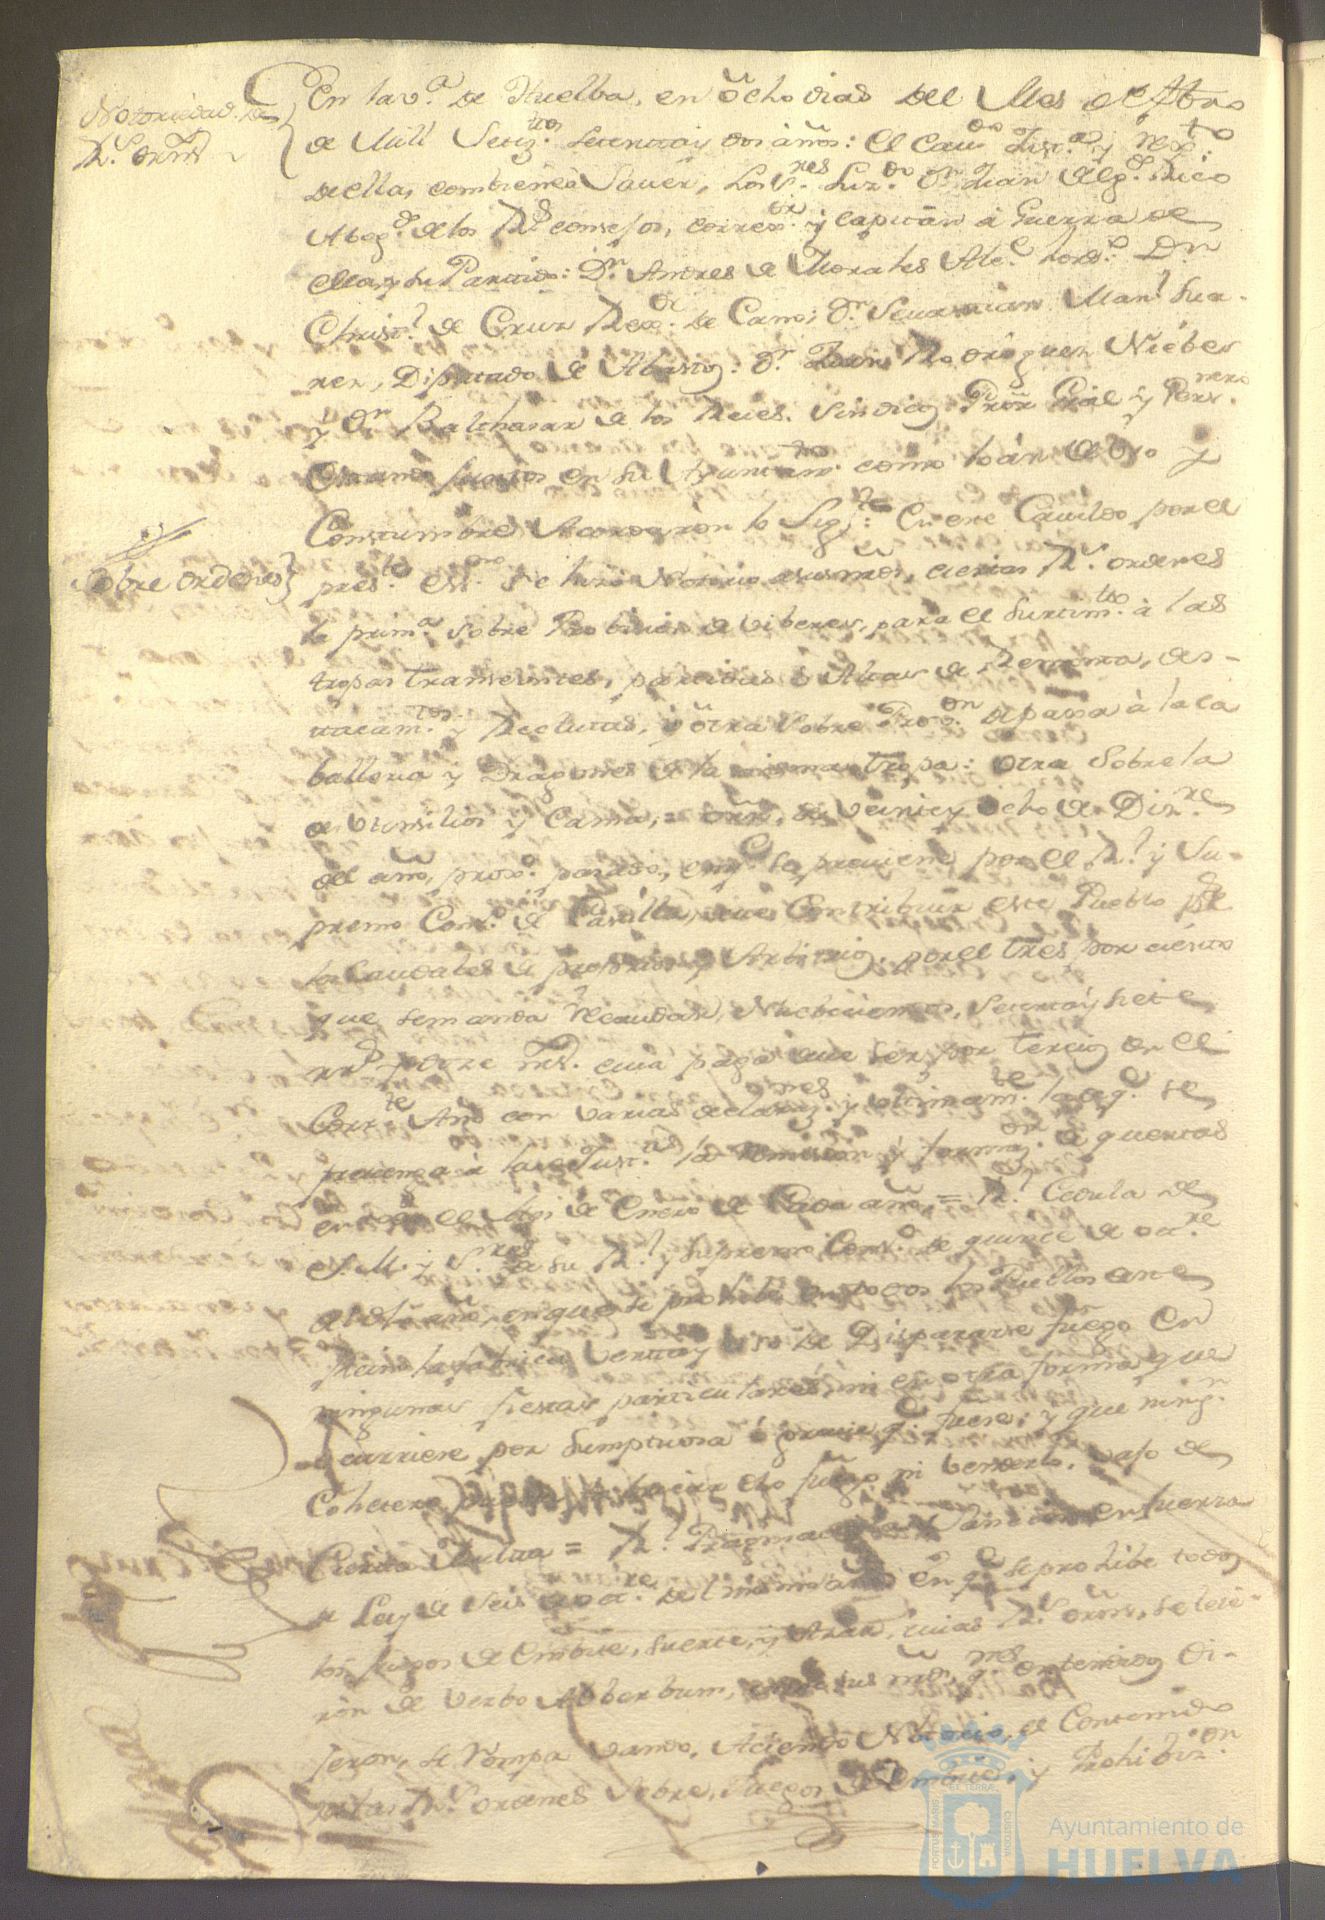 Notoriedad de
Rs. orns
En la va. de Huelba, en ôcho dias del Mes de
de Mill Setez.tos setenta y dos años: el Cav.do Just.a y Rex.to
de ella, combiene a Saver, los S.res Liz.do Dn Juan Delg.do Rico
Abog.do de los Rs. consejos, correx.or y capitán â Guerra de
ella, y su Partido: Dn. Andres de Morales Alc.e hord.o Dn
Christ.l de Cruz Rex.or de Cam; Dn. Sevastian Man.l Sua-
rez, Diputado de Abastos: Dn. Juan Rodriguez Niebes
y Dn Balthasar de los Reies. Sindico Pror Gral y Pers.nero
Estando juntos en su Ayuntam.to como lo án de Uso y
Costumbre Acordaron lo Sig.te: En este Cavildo por el
Sobre ordenes
pres.te ess.no se hizo Notorio a sus mrds, ciertas Rs. ordenes
la prim.a sobre Probicion de viberes, para el surtim.to â las
tropas transeuntes, partidas ô Altas de Remonta, des-
tacam.tos y Reclutas, y ôtra sobre Prov.on de paja â la ca
balleria y Dragones de la misma tropa: otra sobre la
de Utensilios y Camas, = orn, de veinte y ocho de Diz.re
del año, prox.o pasado, en q.e se previene por el R.l y Su-
premo Cons.o de Castilla, deve Contribuir este Pueblo de
los Caudales de propios y Arbitrios, por el tres por ciento
que se manda Recaudar, Nuebecientos, setenta y siete
rrs. y doze ms. cuia paga deve ser por tercios en el
Corr.te Año con varias declaraz.nes y ultimam.te la q.e se
previene â las Just.as la remision y formaz.on de quentas
en todo el Mes de Enero de Cada año, = R.l Cedula de
S. M. y S.res de su R.l y Supremo Cons.o de quince de oct.re
de dho año, en que se prohibe en todos los Pueblos de este
Reino la fabrica, venta y uso de Dispararse fuego en
ningunas fiestas particulares, ni en otra forma que
ocurriere por sumptuosa ô grave q.e fuere; y que ning.n
Cohetero pueda fabricar dho fuego ni benderlo, vajo de
Cierta Multa = R.l Pragmatica Sancion en fuerza
de Ley de seis de oct.re del mismo año en q.e se prohibe todos
los juegos de êmbite, suerte, y Azar, cuias Rs. orns, se leie-
ron de verbo Adberbum, sus mrds, q.e entendidos Di-
jeron, se Rompa Vando, Aciendo Notorio, el Contenido
de las Rs. ordenes sobre Juegos de Embite, y Prohibiz.on
Ayuntamiento de
HUELVA